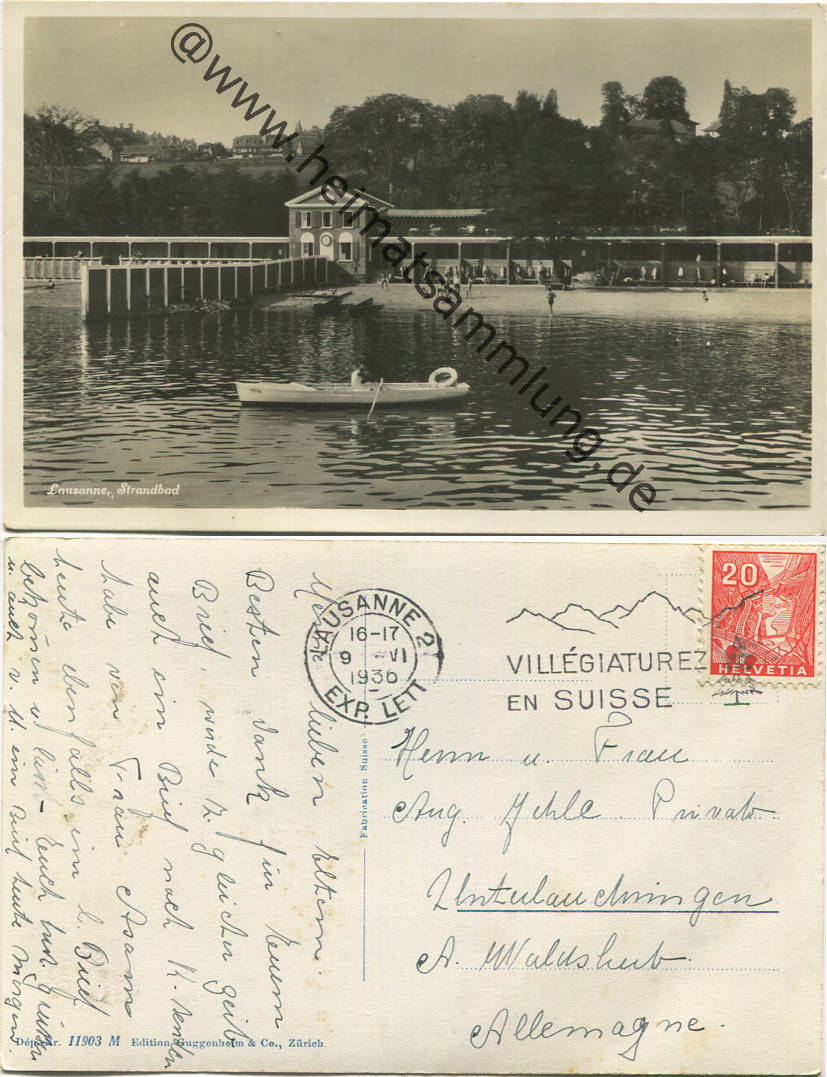 @www.heimatsammlung.de
Lausanne, Strandbad
LAUSANNE 2
16-17
9 VI
1936
EXP. LETT
VILLÉGIATUREZ
EN SUISSE
20
HELVETIA
Fabrication Suisse
Herrn u. Frau
Aug. Private
A. Waldshut
Allemagne.
Meine lieben Eltern.
Besten Dank für Euern
Brief, werde z. gleicher Zeit
auch ein Brief nach K. senden
habe von Frau
heute ebenfalls im l. Brief
bekommen u. lässt Euch
u. auch v. ein Brief heute Morgen
11903 M Edition Guggenheim & Co., Zürich